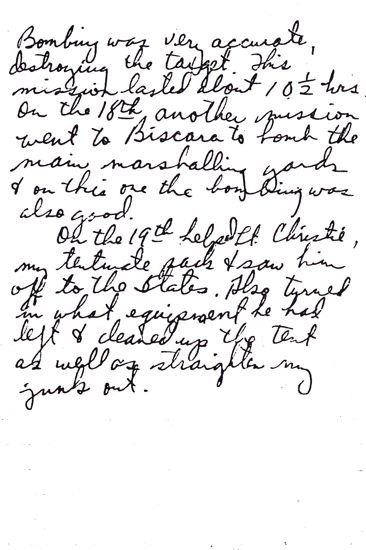 Bombing was very accurate,
destroying the target. This
mission lasted about 10 ½ hrs.
On the 18th another mission
went to Biscara to bomb the
main marshalling yards
& on this one the bombing was
also good.
On the 19th helped Lt. Christie,
my tentmate pack & saw him
off to the States. Also turned
in what equipment he had
left & cleaned up the tent
as well as straighten my
junk out.